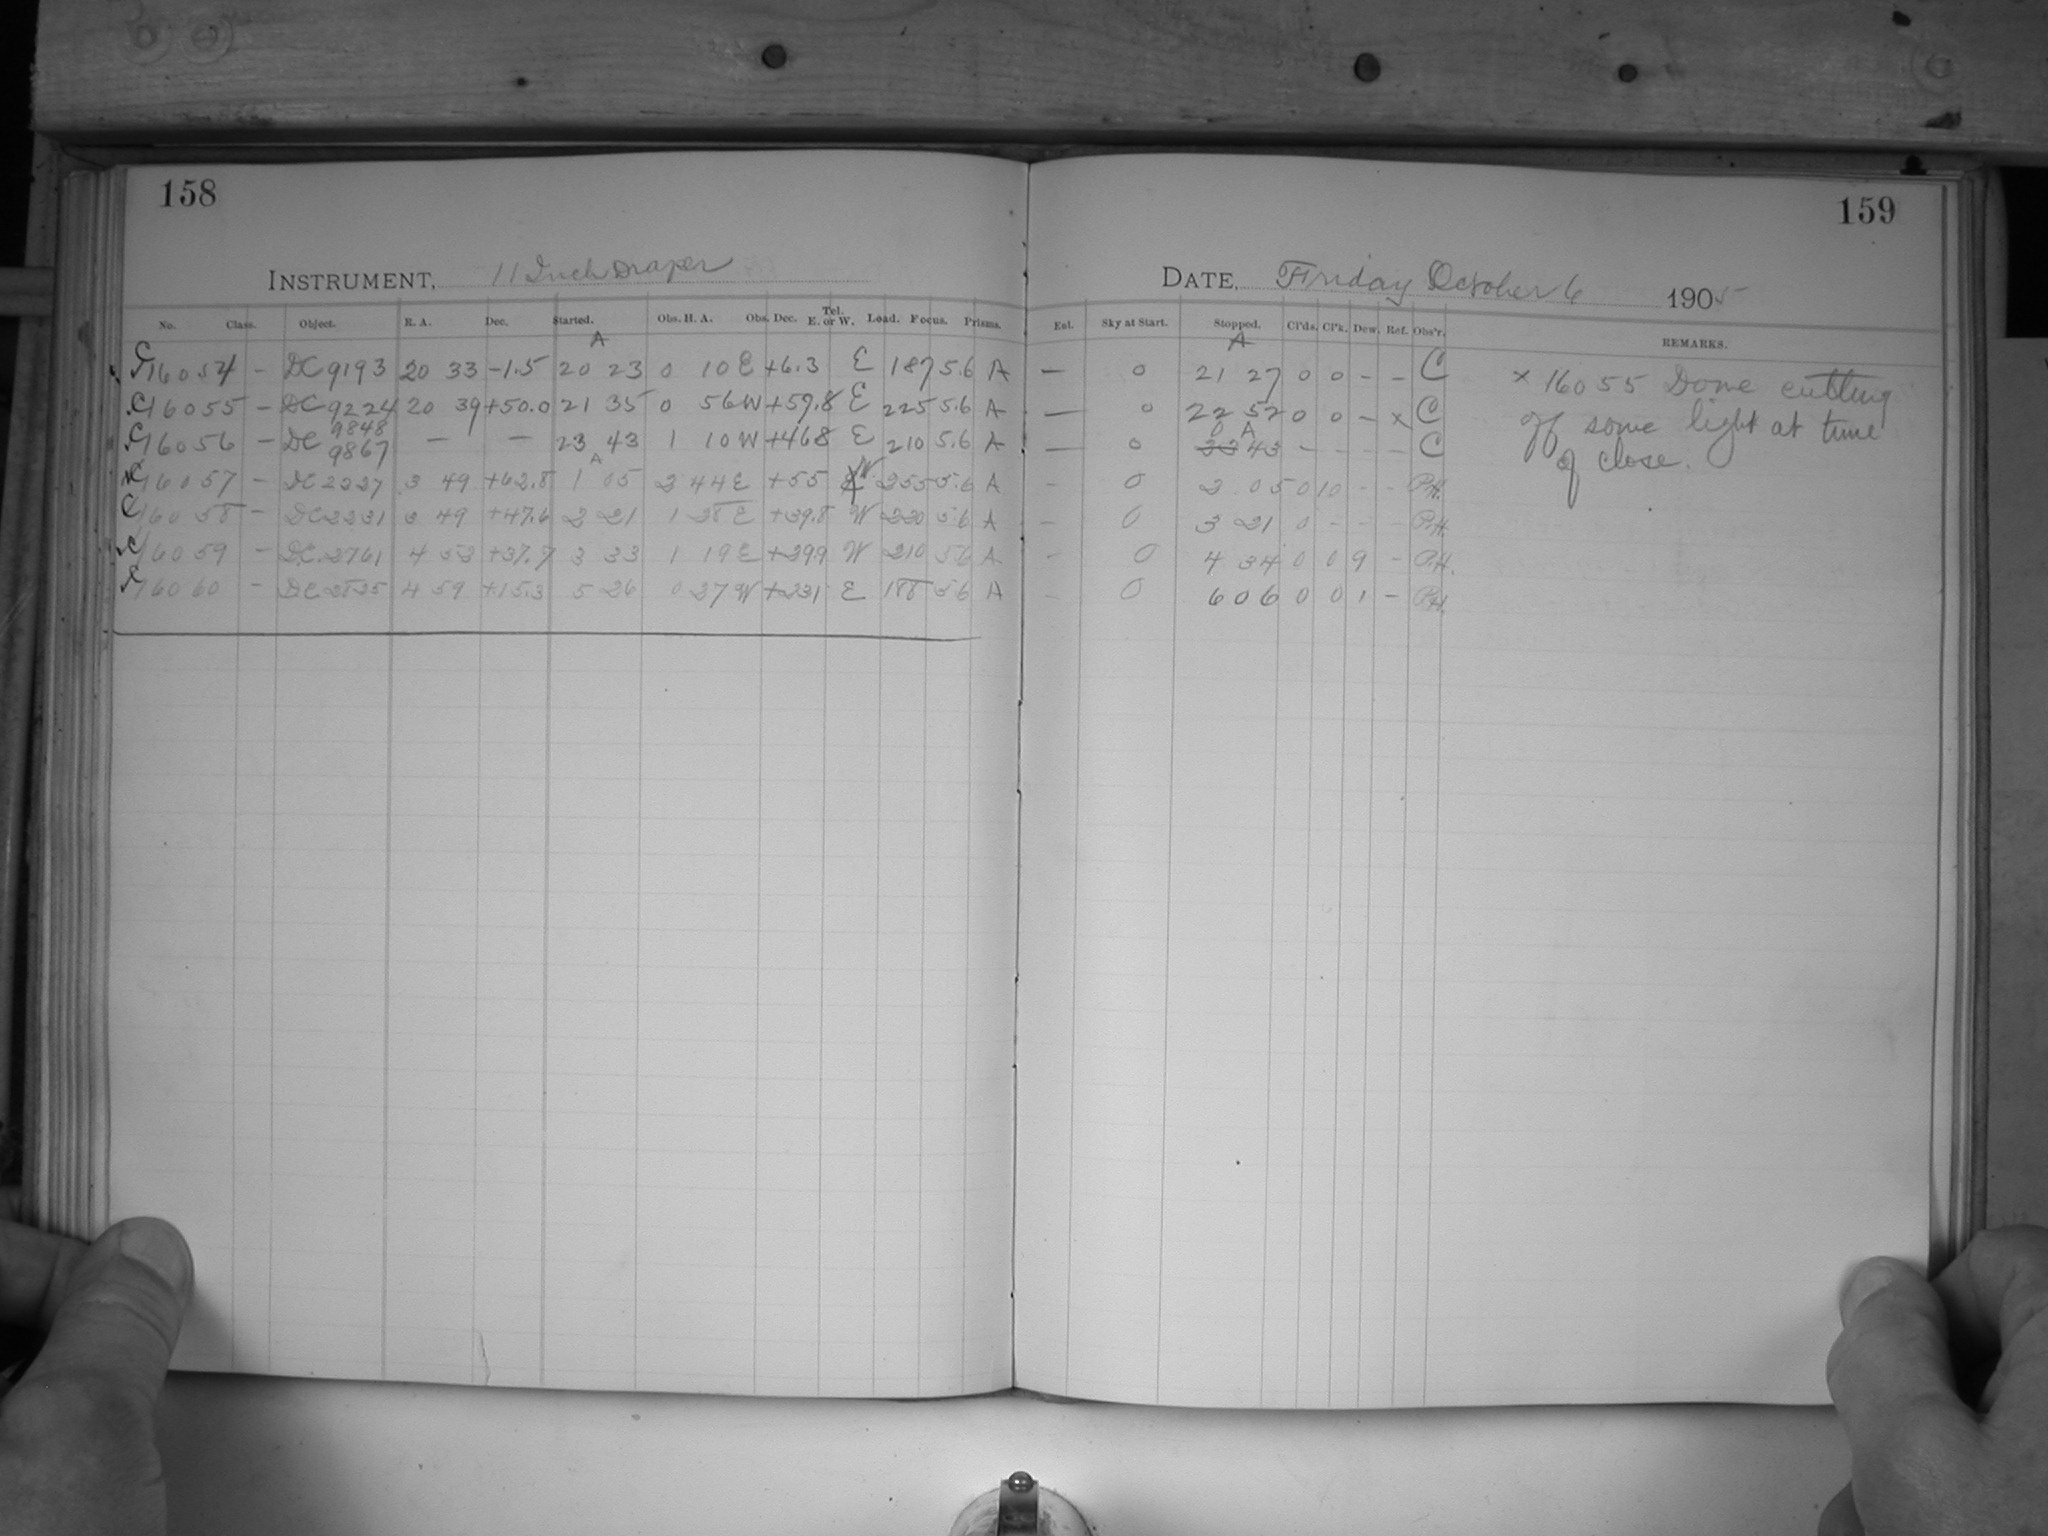 158
INSTRUMENT, 11 Inch Draper
No. Class. Object. R. A. Dec. Started. Obs. H. A. Obs. Dec. Tel. E. or W. Load. Focus. Prisms.
A
C 16054 - DC 9193 20 33 -1.5 20 23 0 10 E +6.3 E 187 5.6 A
C 16055 - DC 9224 20 39 +50.0 21 35 0 56 W +59.8 E 225 5.6 A
C 16056 - DC 9848 9867 — — 23 43 1 10 W +46.8 E 210 5.6 A
A
C 16057 - DC 2227 3 49 +62.8 1 05 2 44 E +55 W 255 5.6 A
C 16058 - DC 2231 3 49 +47.6 2 21 1 28 E +39.8 W 220 5.6 A
C 16059 - DC 2761 4 53 +37.7 3 33 1 19 E +29.9 W 210 5.6 A
C 16060 - DC 2835 4 59 +15.3 5 26 0 27 W +231 E 188 5.6 A
159
DATE, Friday October 6 1905
Ent. Sky at Start. Stopped. Cl'ds. Cl'k. Dew. Ref. Obs'r. REMARKS.
A
— 0 21 27 0 0 - - C
— 0 22 52 0 0 - x C
0 A
— 0 23 43 - - - - C
- 0 2 05 0 10 - - P.H.
- 0 3 21 0 - - - P.H.
- 0 4 34 0 0 9 - P.H.
- 0 6 06 0 0 1 - P.H.
x 16055 Dome cutting
off some light at time
of close.